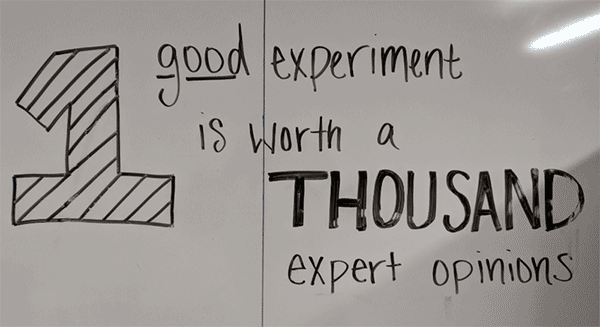 1 good experiment
is worth a
THOUSAND
expert opinions